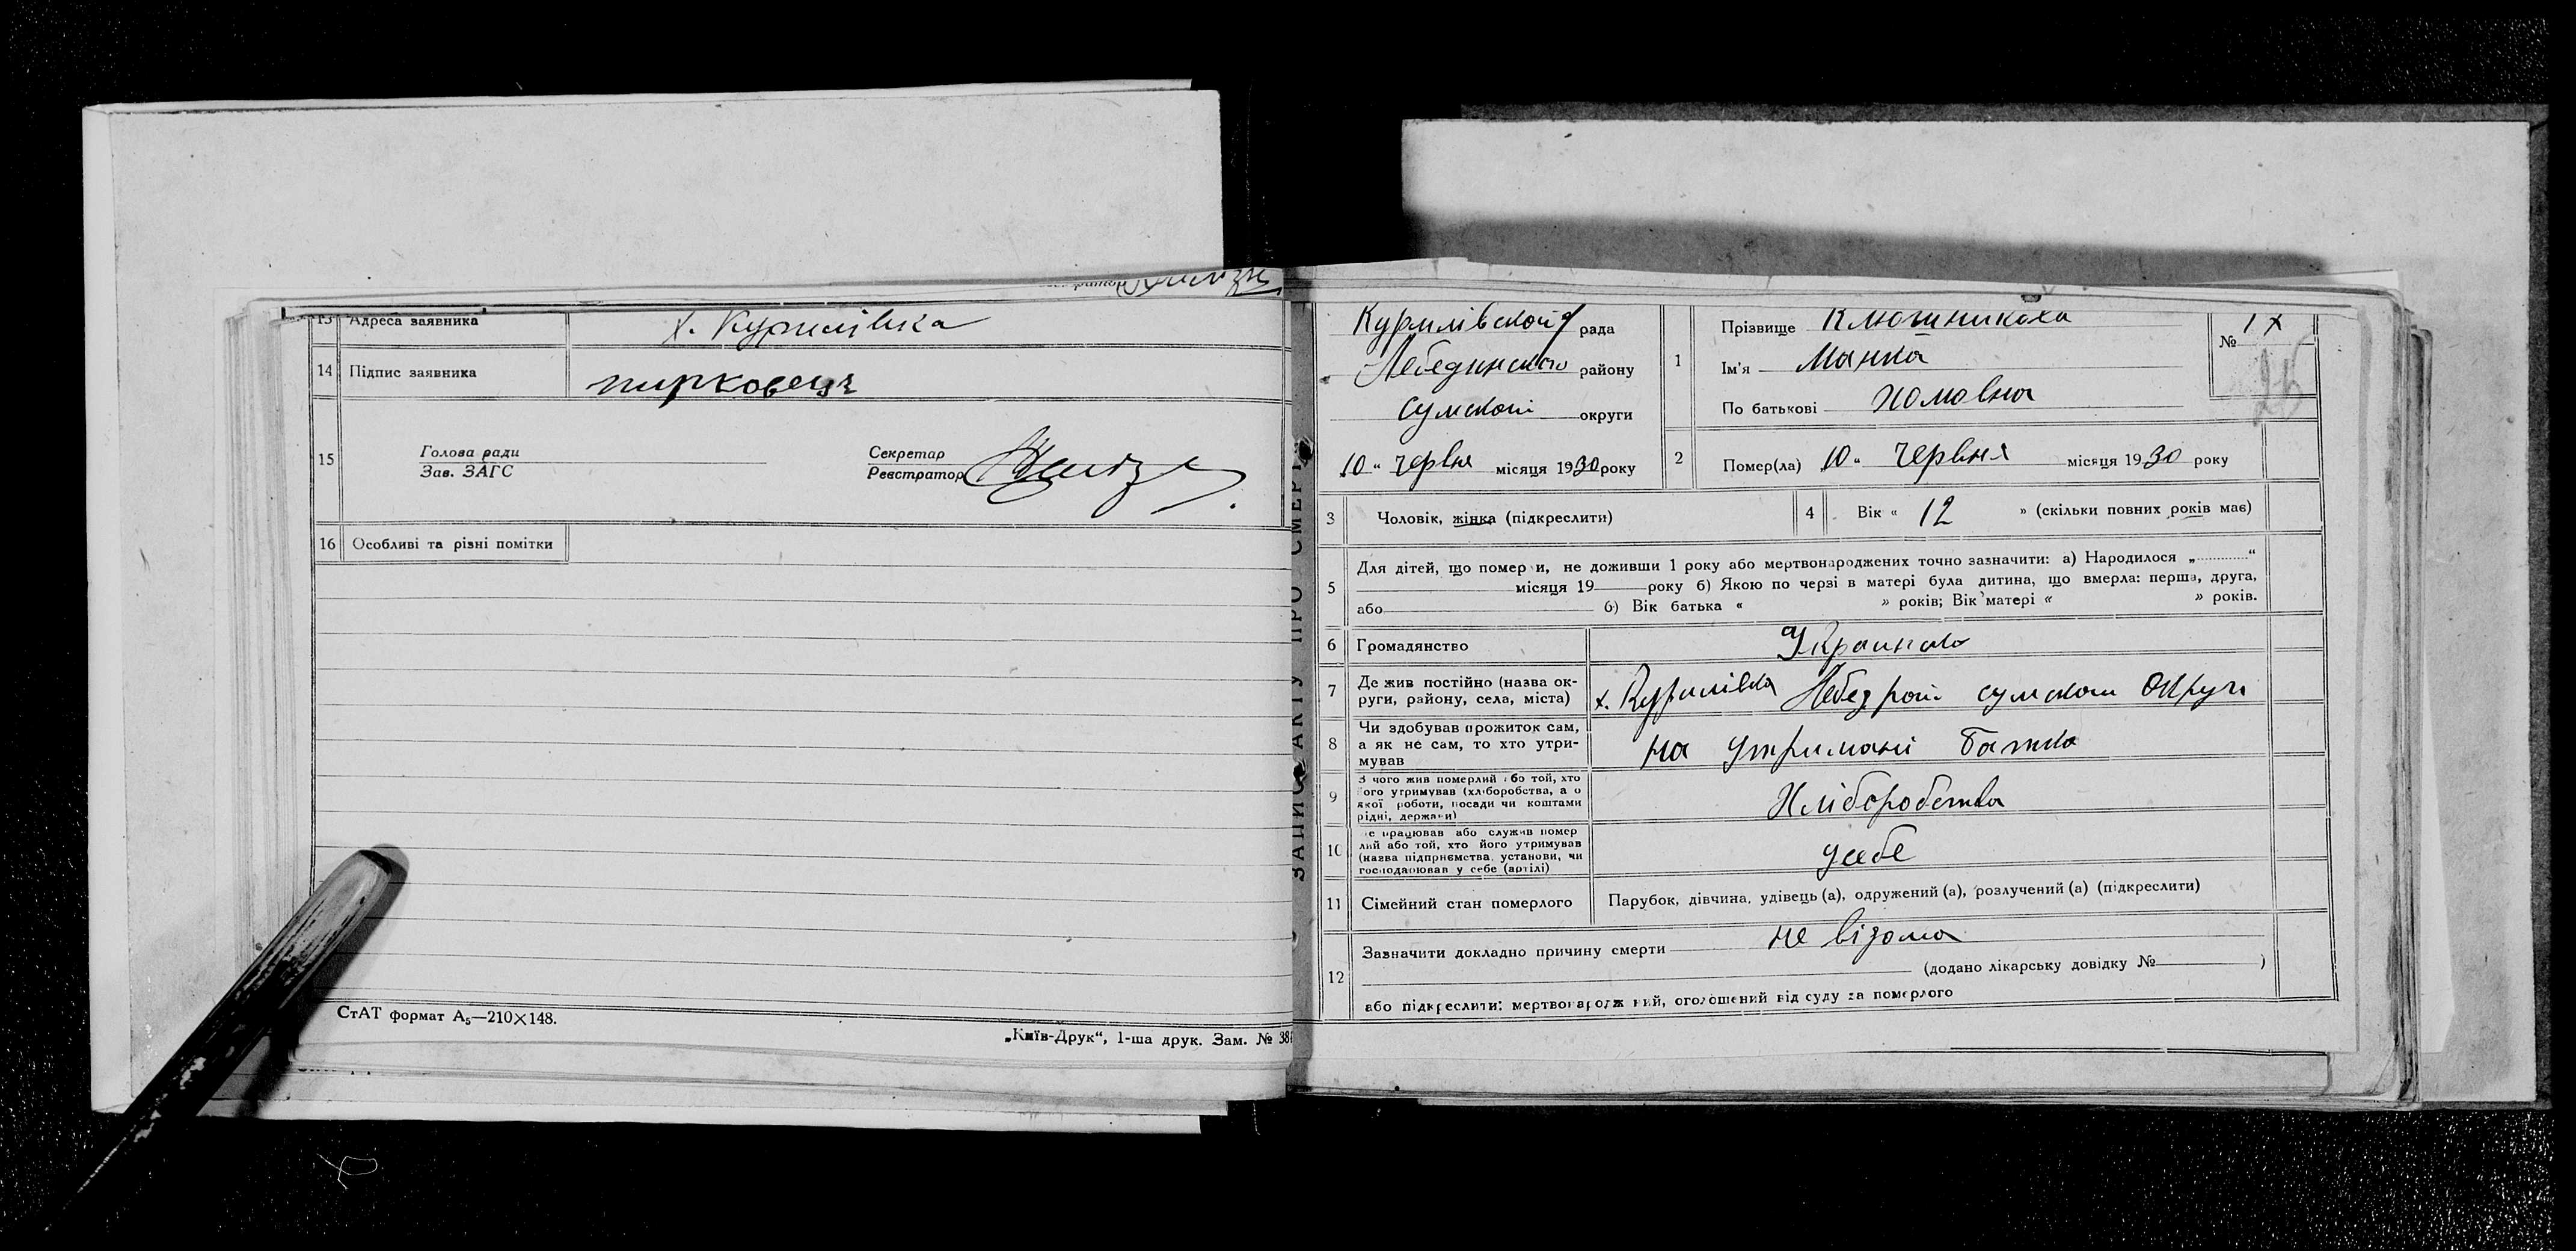 13 Адреса заявника х. Курилівка
14 Підпис заявника пирковець
15 Голова ради
Зав. ЗАГС
Секретар
Реєстратор
16 Особливі та різні помітки
СтАТ формат А₅—210×148.
„Київ-Друк“, 1-ша друк. Зам. № 38
ЗАПИС АКТУ ПРО СМЕРТЬ
Курилівской рада
Лебединского району
Сумской округи
10 " червня місяця 1930 року
1 Прізвище
Ім'я Манка
По батькові Хомовна
№ 1х
2 Помер(ла) 10 " червня місяця 1930 року
3 Чоловік, жінка (підкреслити)
4 Вік « 12 » (скільки повних років має)
5 Для дітей, що помер и, не доживши 1 року або мертвонароджених точно зазначити: а) Народилося „ “
місяця 19 року б) Якою по черзі в матері була дитина, що вмерла: перша, друга,
або б) Вік батька « » років; Вік матері « » років.
6 Громадянство
7 Де жив постійно (назва ок-
руги, району, села, міста) х. Курилівка Лебед рай. сумскои Округи
8 Чи здобував прожиток сам,
а як не сам, то хто утри-
мував на утримані батька
9 З чого жив померлий або той, хто
його утримував (хліборобства, а о
якої роботи, посади чи коштами
рідні, держави) Хліборобства
10 Де працював або служив помер
лий або той, хто його утримував
(назва підприємства, установи, чи
господарював у себе (артілі) усебе
11 Сімейний стан померлого Парубок, дівчина, удівець (а), одружений (а), розлучений (а) (підкреслити)
12 Зазначити докладно причину смерти не відома
(додано лікарську довідку № )
або підкреслити: мертвонароджений, оголошений від суду за померлого